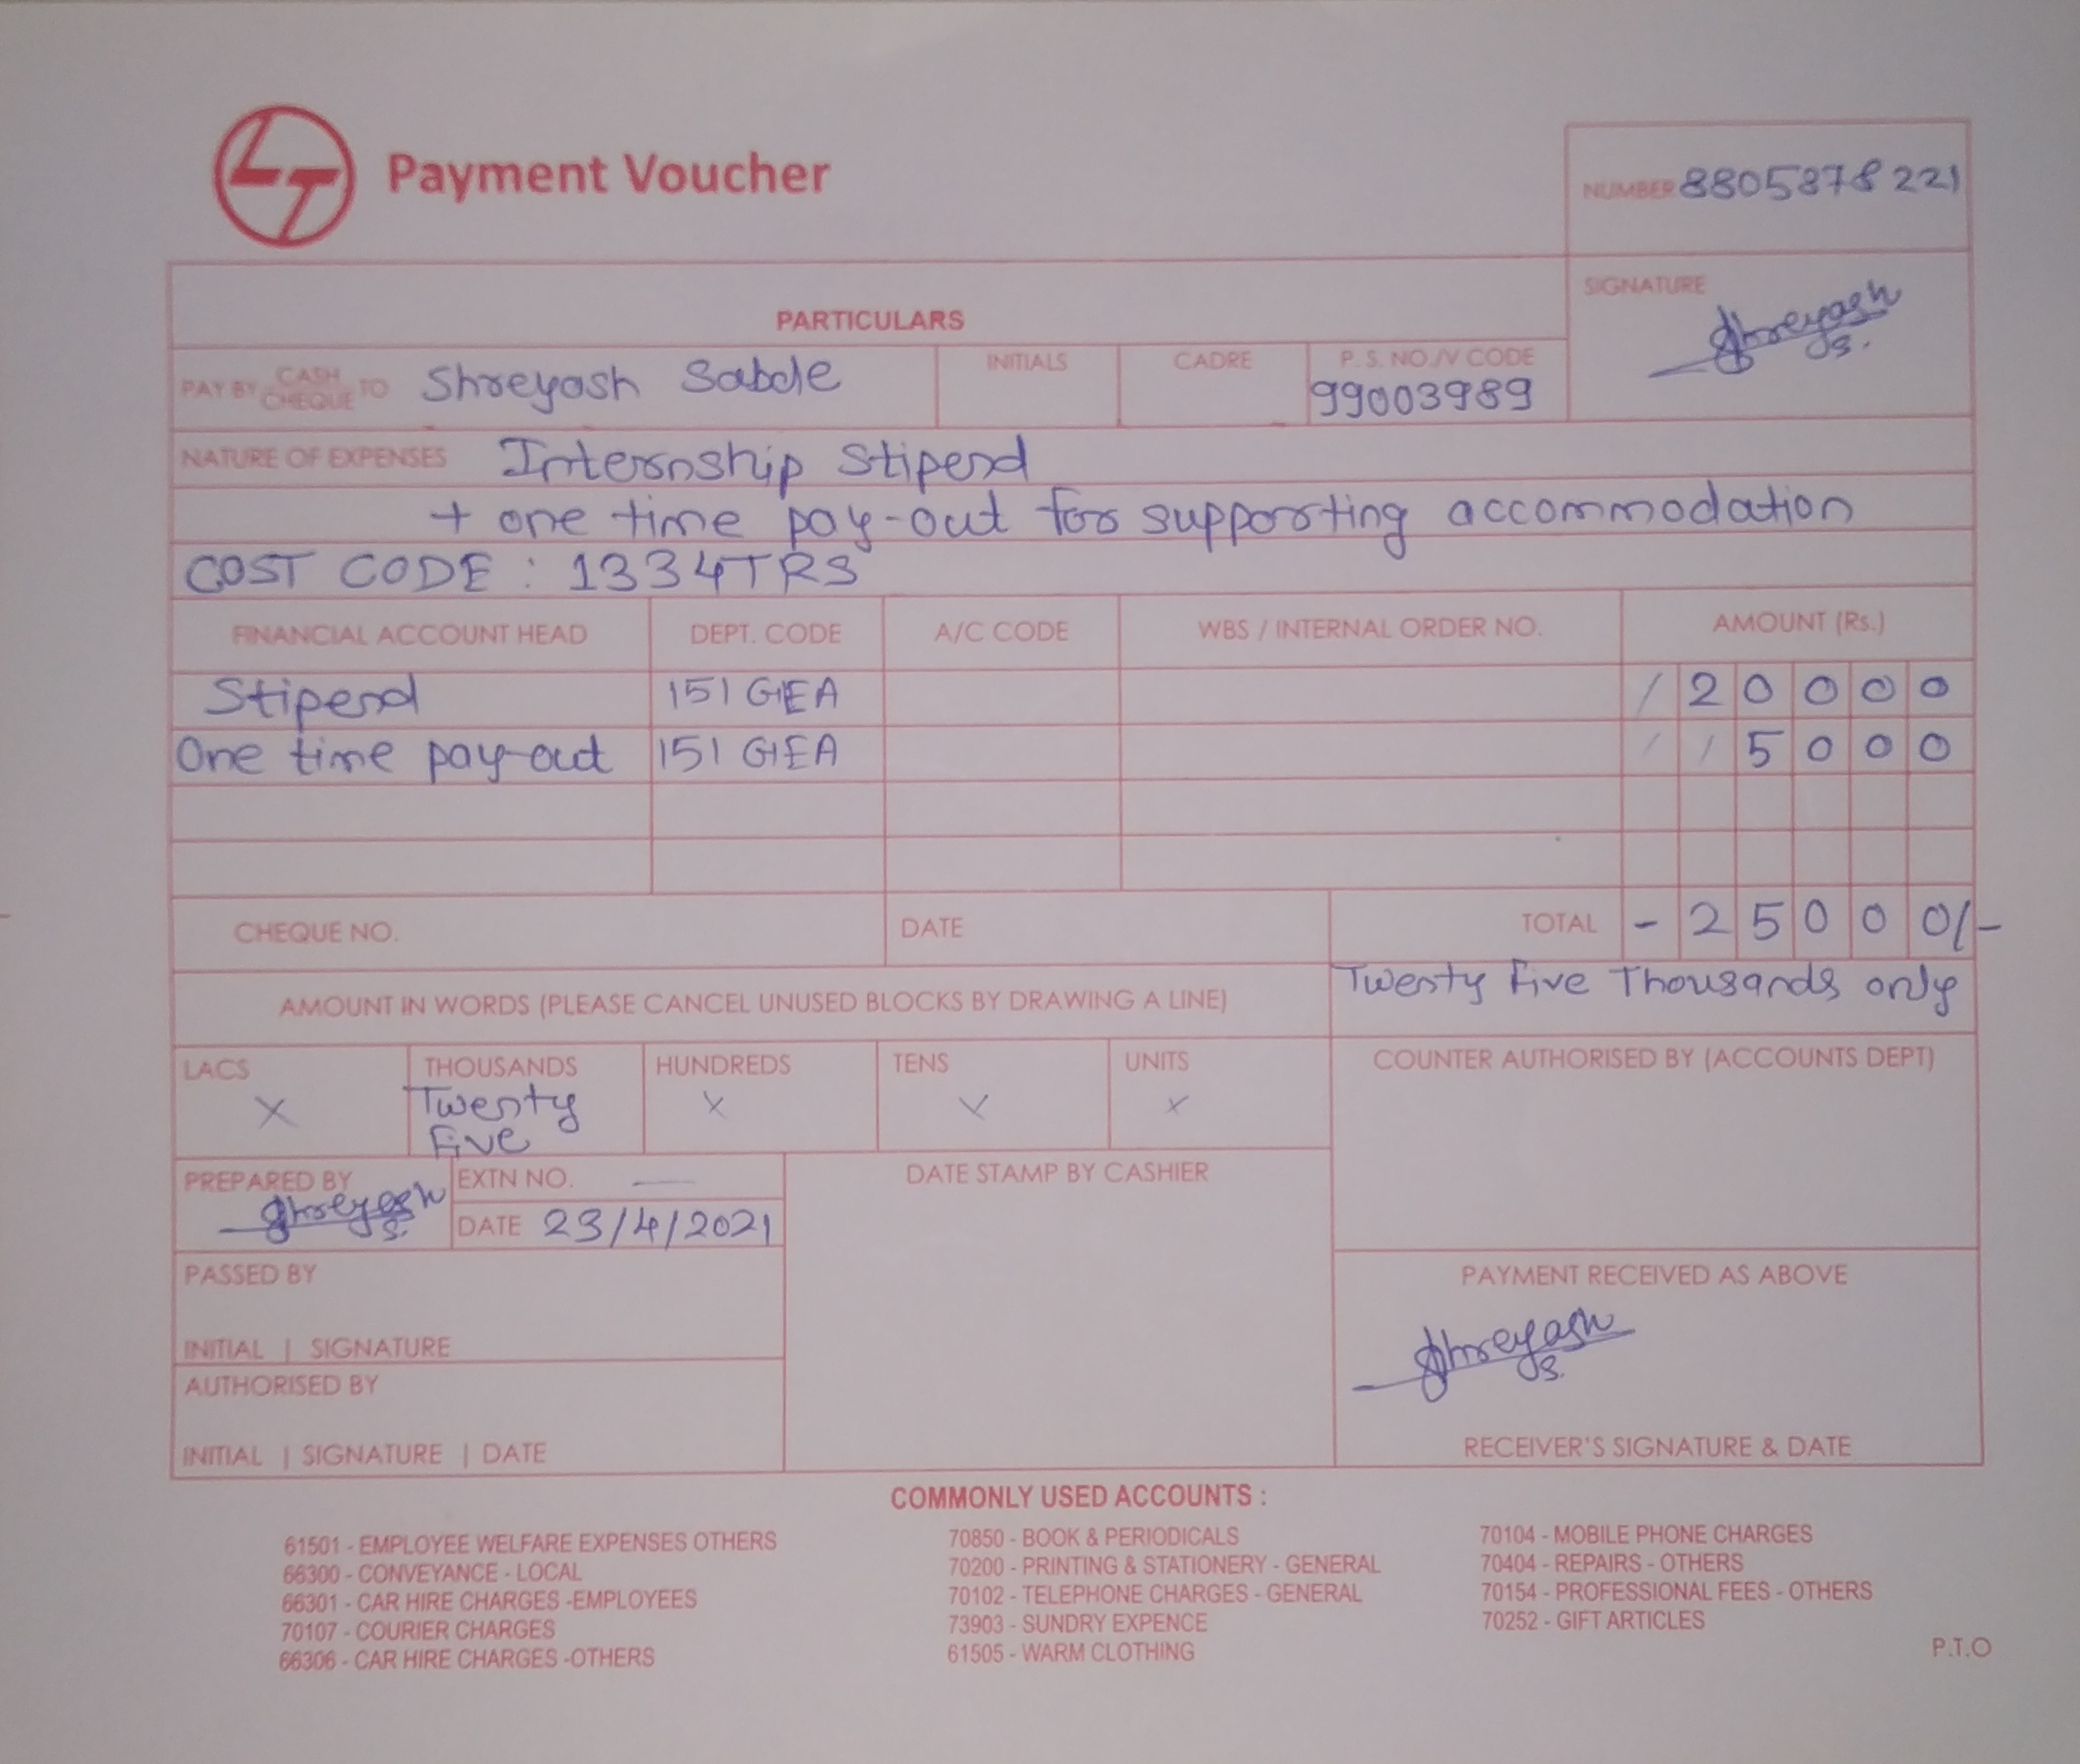 LT Payment Voucher
NUMBER 8805878221
PARTICULARS
SIGNATURE
Shreyash
S.
PAY BY CASH CHEQUE TO Shreyash Sabde
INITIALS
CADRE
P. S. NO./V CODE
99003989
NATURE OF EXPENSES Internship Stipend
+ one time pay-out for supporting accommodation
COST CODE : 1334TRS
FINANCIAL ACCOUNT HEAD DEPT. CODE A/C CODE WBS / INTERNAL ORDER NO. AMOUNT (Rs.)
Stipend 151 GEA / 2 0 0 0 0
One time pay-out 151 GEA / / 5 0 0 0
CHEQUE NO. DATE TOTAL - 2 5 0 0 0/-
AMOUNT IN WORDS (PLEASE CANCEL UNUSED BLOCKS BY DRAWING A LINE) Twenty Five Thousands only
LACS THOUSANDS HUNDREDS TENS UNITS
X Twenty X X X
Five
COUNTER AUTHORISED BY (ACCOUNTS DEPT)
PREPARED BY
Shreyash
S.
EXTN NO. —
DATE 23/4/2021
DATE STAMP BY CASHIER
PASSED BY
INITIAL | SIGNATURE
AUTHORISED BY
INITIAL | SIGNATURE | DATE
PAYMENT RECEIVED AS ABOVE
Shreyash
S.
RECEIVER'S SIGNATURE & DATE
COMMONLY USED ACCOUNTS :
61501 - EMPLOYEE WELFARE EXPENSES OTHERS
66300 - CONVEYANCE - LOCAL
66301 - CAR HIRE CHARGES -EMPLOYEES
70107 - COURIER CHARGES
66306 - CAR HIRE CHARGES -OTHERS
70850 - BOOK & PERIODICALS
70200 - PRINTING & STATIONERY - GENERAL
70102 - TELEPHONE CHARGES - GENERAL
73903 - SUNDRY EXPENCE
61505 - WARM CLOTHING
70104 - MOBILE PHONE CHARGES
70404 - REPAIRS - OTHERS
70154 - PROFESSIONAL FEES - OTHERS
70252 - GIFT ARTICLES
P.T.O